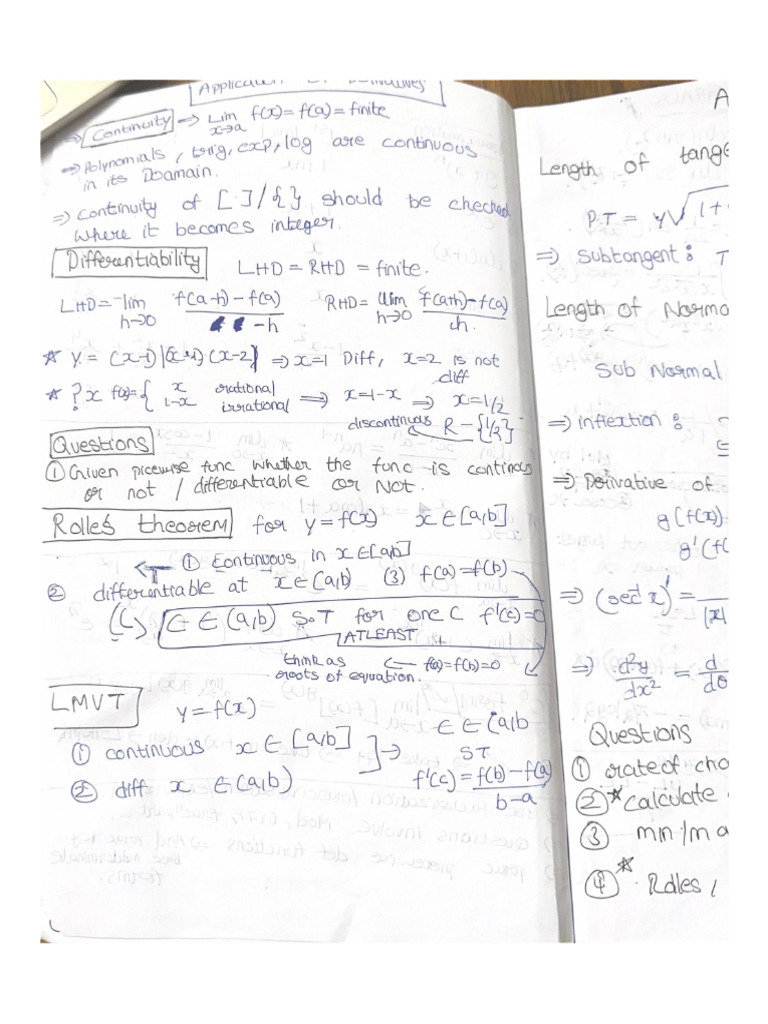 Application of Derivatives
⇒ Continuity ⇒ Lim x→a f(x) = f(a) = finite
⇒ Polynomials, trig, exp, log are continuous
in its Doamain.
⇒ Continuity of [·]/{} should be checked
where it becomes integer.
Differentiability LHD = RHD = finite.
LHD = lim h→0 f(a-h) - f(a) / -h RHD = lim h→0 f(a+h) - f(a) / h.
* y = (x-1) |(x-1)·(x-2)| ⇒ x=1 Diff, x=2 is not
diff
* ? x f(x) = { x rational
1-x irrational ⇒ x=1-x ⇒ x=1/2
discontinuous ← R - {1/2}
Questions
① Given picewise func whether the func is continous
or not / differentiable or Not.
Rolle's theorem for y = f(x) x ∈ [a,b]
① Continuous in x ∈ [a,b]
② differentiable at x ∈ (a,b) (3) f(a) = f(b)
C ∈ (a,b) S.T for one C f'(c) = 0
ATLEAST
think as ← f(a) = f(b) = 0
roots of equation.
LMVT y = f(x)
① continuous x ∈ [a,b] → C ∈ (a,b
② diff x ∈ (a,b) ST
f'(c) = f(b) - f(a) / b-a
A
Length of tange
P.T = y√1+
⇒ Subtangent : T
Length of Norma
Sub Normal
⇒ inflextion :
⇒ Derivative of
g(f(x))
g'(f(
⇒ (sec⁻¹x)' = / |x|
⇒ d²y/dx² = d/dθ
Questions
① rate of cha
②* Calculate
③ min/ma
④* Rolles,